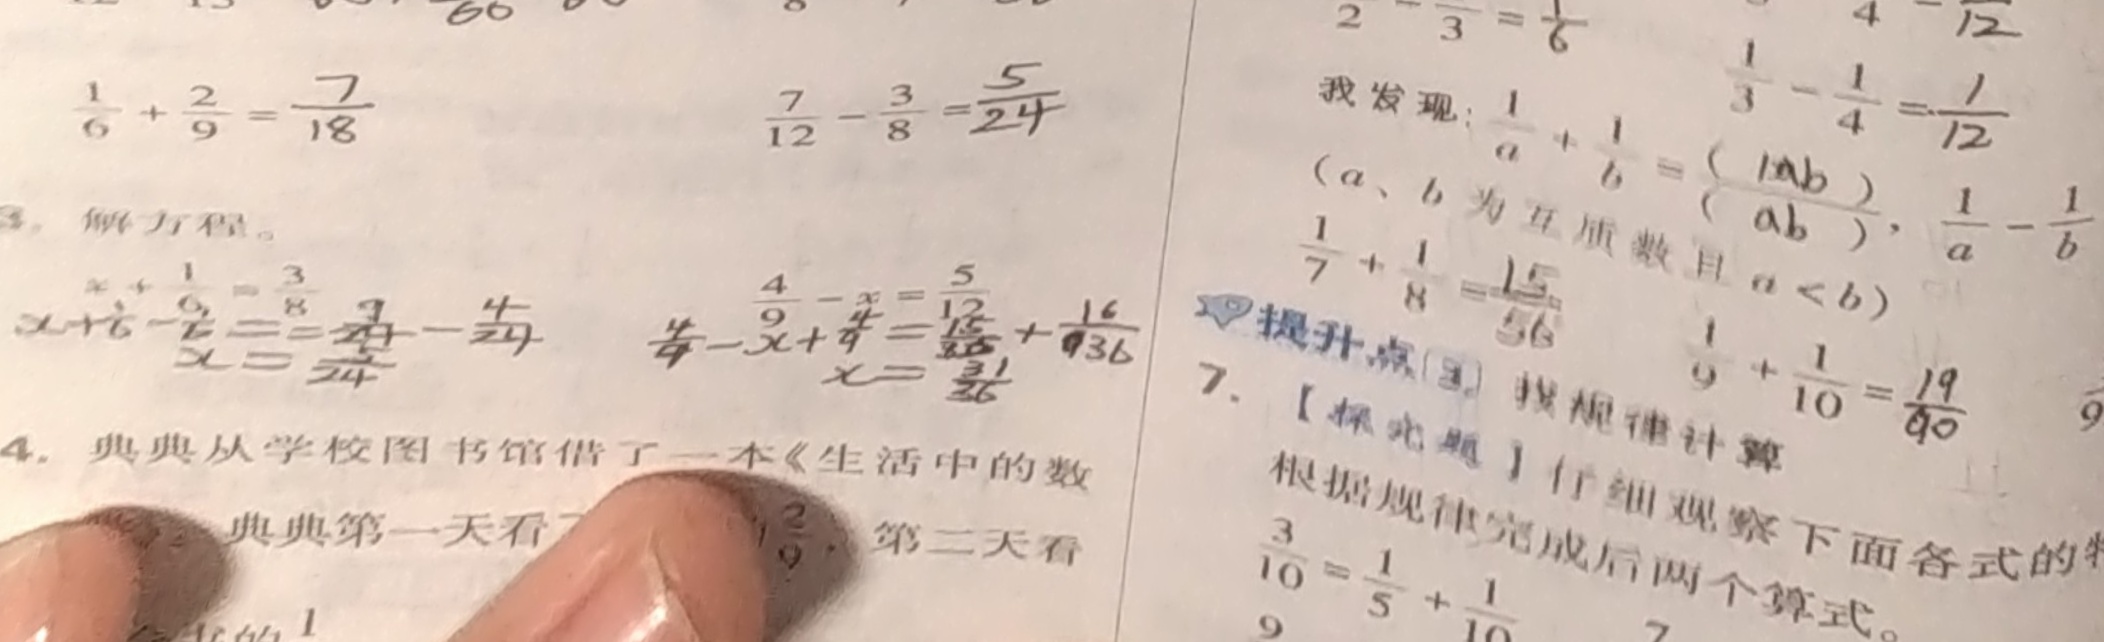 1/6 + 2/9 = 7/18
7/12 − 3/8 = 5/24
3. 解方程。
x + 1/6 = 3/8
x + 1/6 − 1/6 = = 9/24 − 4/24
x = 5/24
4/9 − x = 5/12
4/9 − x + 4/9 = 15/36 + 16/36
x = 31/36
4. 典典从学校图书馆借了一本《生活中的数
典典第一天看了 2/9, 第二天看
的 1
2 − 3 = 1/6
4 − 12
1/3 − 1/4 = 1/12
我发现: 1/a + 1/b = (1ab)/(ab), 1/a − 1/b
(a、b 为互质数且 a < b)
1/7 + 1/8 = 15/56
1/9 + 1/10 = 19/90
9
提升点 3 找规律计算
7. 【探究题】仔细观察下面各式的特
根据规律完成后两个算式。
3/10 = 1/5 + 1/10
9
7